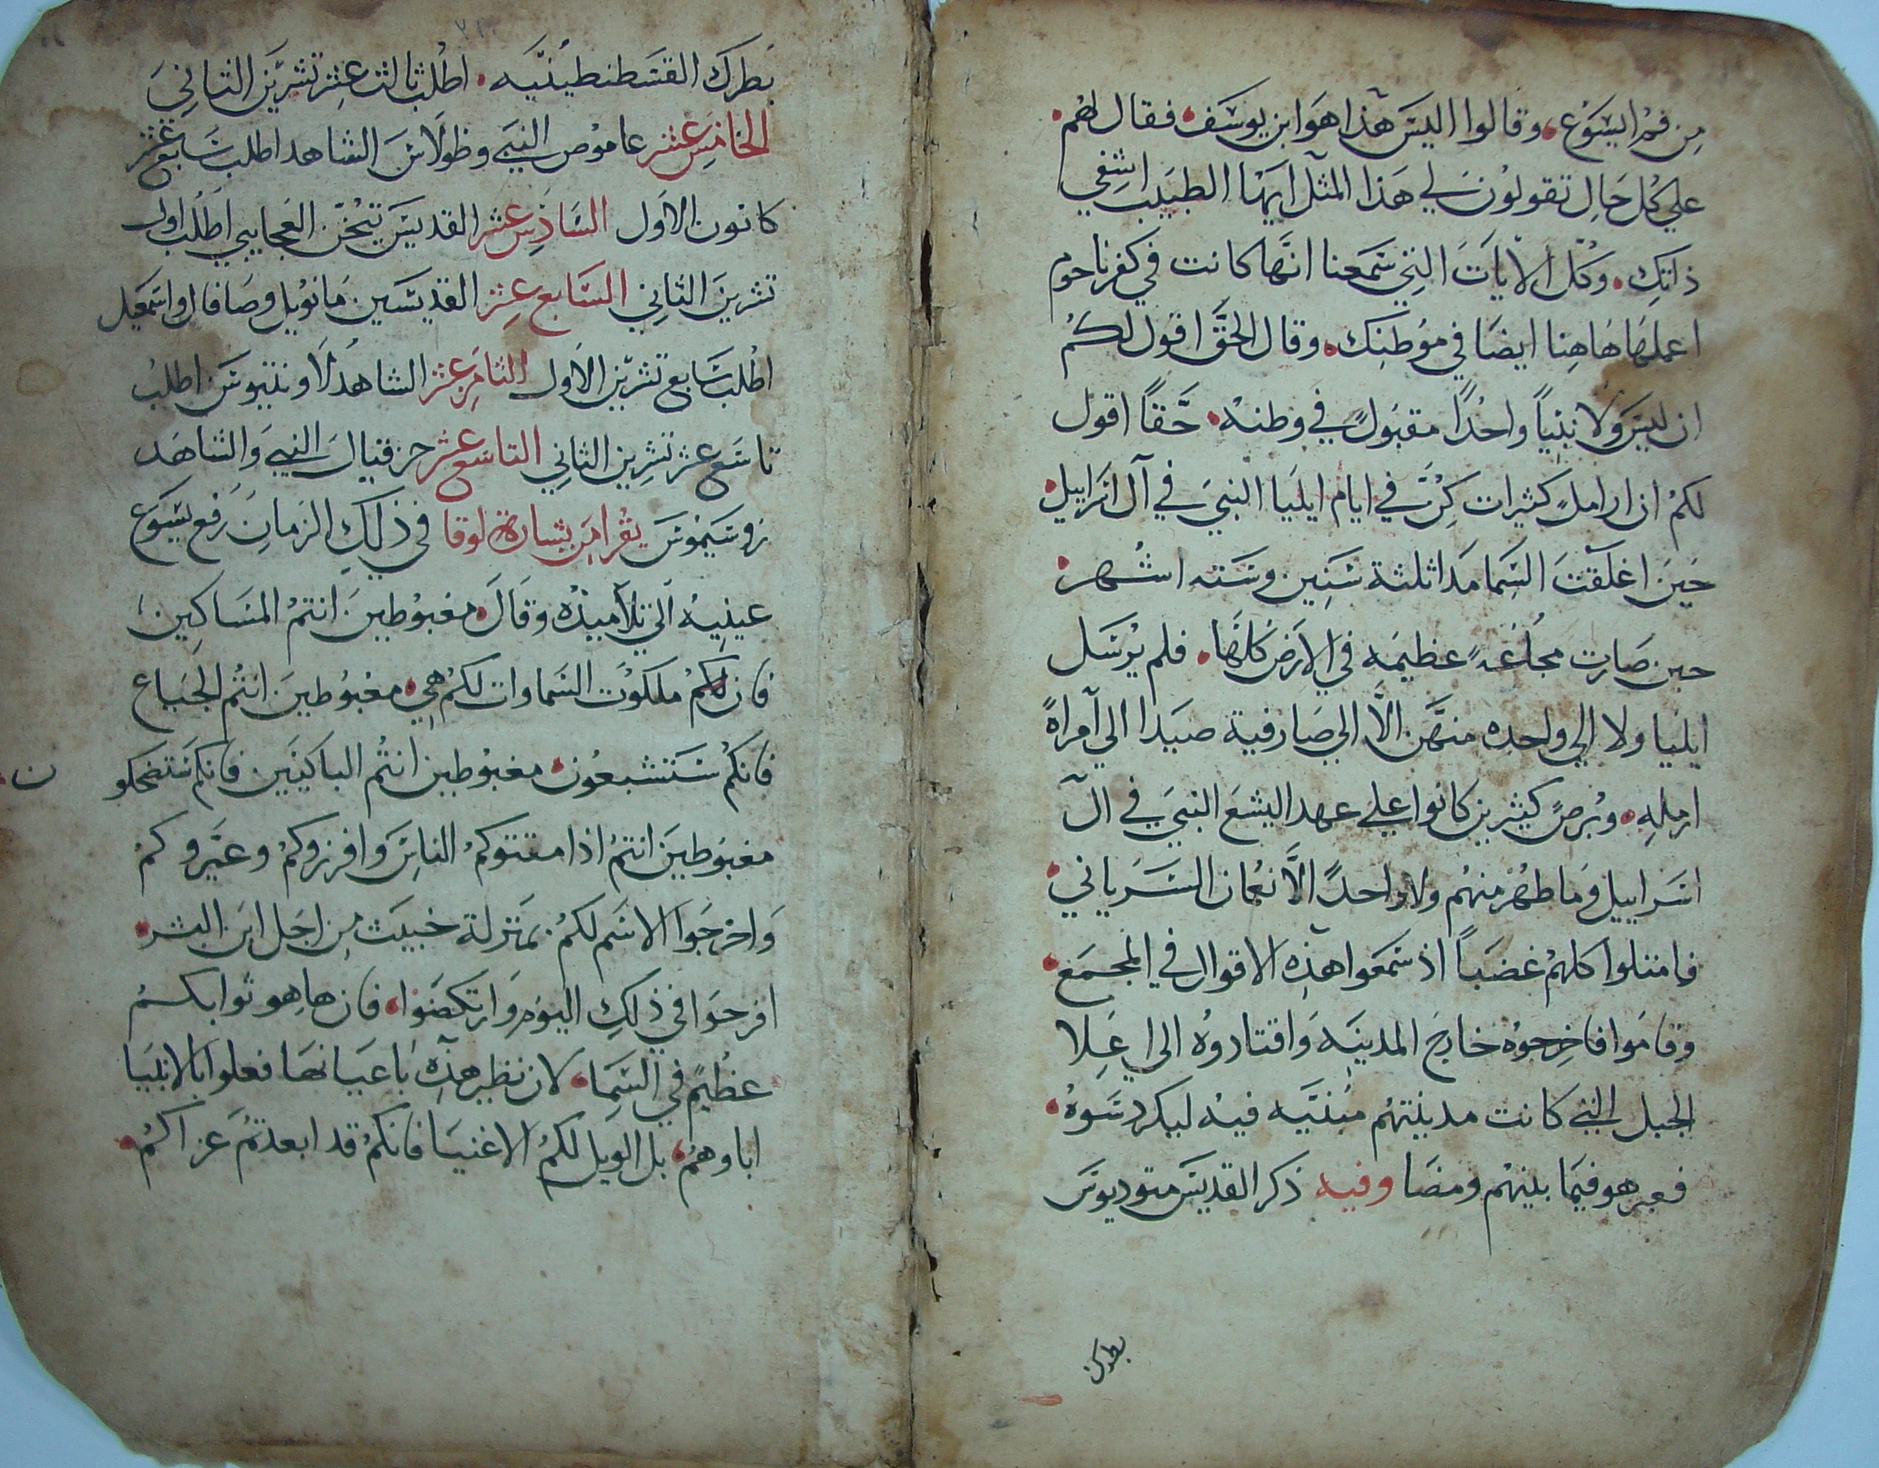 من فم ايسوع وقالوا اليس هذا هوا ابن يوسف فقال لهم
علي كل حال تقولون لي هذا المثل ايها الطبيب اشفي
ذاتك وكل الايات التي سمعنا انها كانت في كفرناحوم
اعملها هاهنا ايضا في موطنك وقال الحق اقول لكم
ان ليس ولا نبياً واحداً مقبول في وطنه حقاً اقول
لكم ان ارامل كثيرات كن في ايام ايليا النبي في آل اسراييل
حين اغلقت السما مدا ثلثة سنين وسته اشهر
حين صارت مجاعة عظيمه في الارض كلها فلم يرسل
ايليا ولا الي واحده منهن الا الي صارفية صيدا الي آمراةً
ارمله وبرص كيثرين كانوا علي عهد اليشع النبي في ال
اسراييل وما طهر منهم ولا واحداً الا نعمان السرياني
فامتلوا كلهم غضباً اذ سمعوا هذه الاقوال في المجمع
وقاموا فاخرجوه خارج المدينه واقتادوه الي اعلا
الجبل التي كانت مدينتهم مبنيه فيه ليكردسوه
فعبر هو فيما بينهم ومضا وفيه ذكر القديس متوديوس
بطرك
بطرك القسطنطينيه اطلب ثالث عشر تشرين التاني
الخامس عشر عاموص النبي وظولاس الشاهد اطلب سابع عشر
كانون الاول السادس عشر القديس تيخن العجايبي اطلب اول
تشرين الثاني السابع عشر القديسين مانويل وصافال واسمعيل
اطلب سابع تشرين الاول الثامن عشر الشاهد لاونتيوس اطلب
تاسع عشر تشرين الثاني التاسع عشر حزقيال النبي والشاهد
زوسيموس يقرا من بشارة لوقا في ذلك الزمان رفع يسوع
عينيه الي تلاميذه وقال مغبوطين انتم المساكين
فان لكم ملكوت السماوات لكم هي مغبوطين انتم الجياع
فانكم ستشبعون مغبوطين انتم الباكيين فانكم ستضحكو ن
مغبوطين انتم اذا مقتوكم الناس وافرزوكم وعيروكم
واخرجوا الاسم لكم بمنزلة خبيث من اجل ابن البشر
افرحوا في ذلك اليوم وارتكضوا فان ها هو ثوابكم
عظيم في السما لان نظير هذه باعيانها فعلوا بالانبيا
اباوهم بل الويل لكم الاغنيا فانكم قد ابعدتم عزاكم